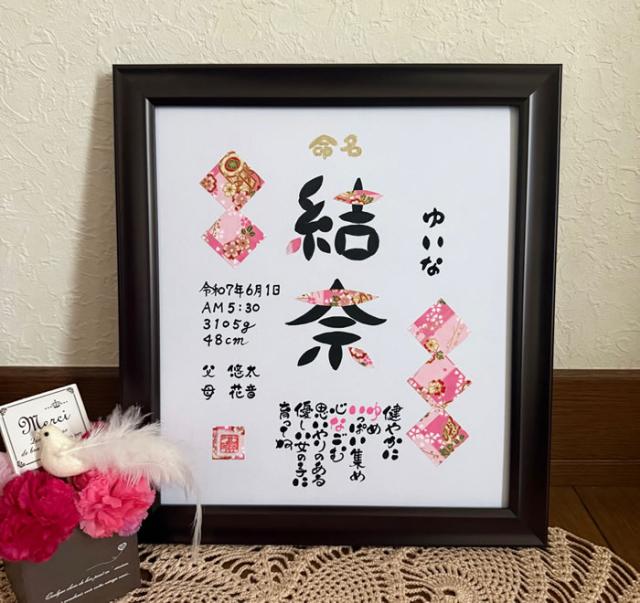 命名
結奈
ゆいな
令和7年6月1日
AM5:30
3105g
48cm
父 悠太
母 花音
健やかに
ゆめ
いっぱい集め
心なごむ
思いやりのある
優しい女の子に
育ってね
Merci